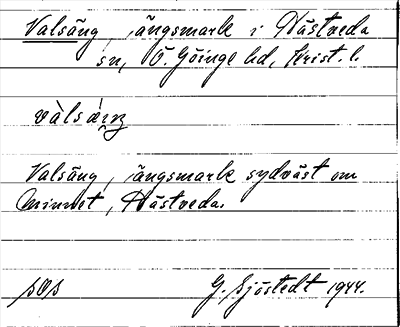 Valsäng, ängsmark i Hästveda
sn, Ö. Göinge hd, Krist. l.
Valsäng, ängsmark sydväst om
Hästveda.
G. Sjöstedt 1944.